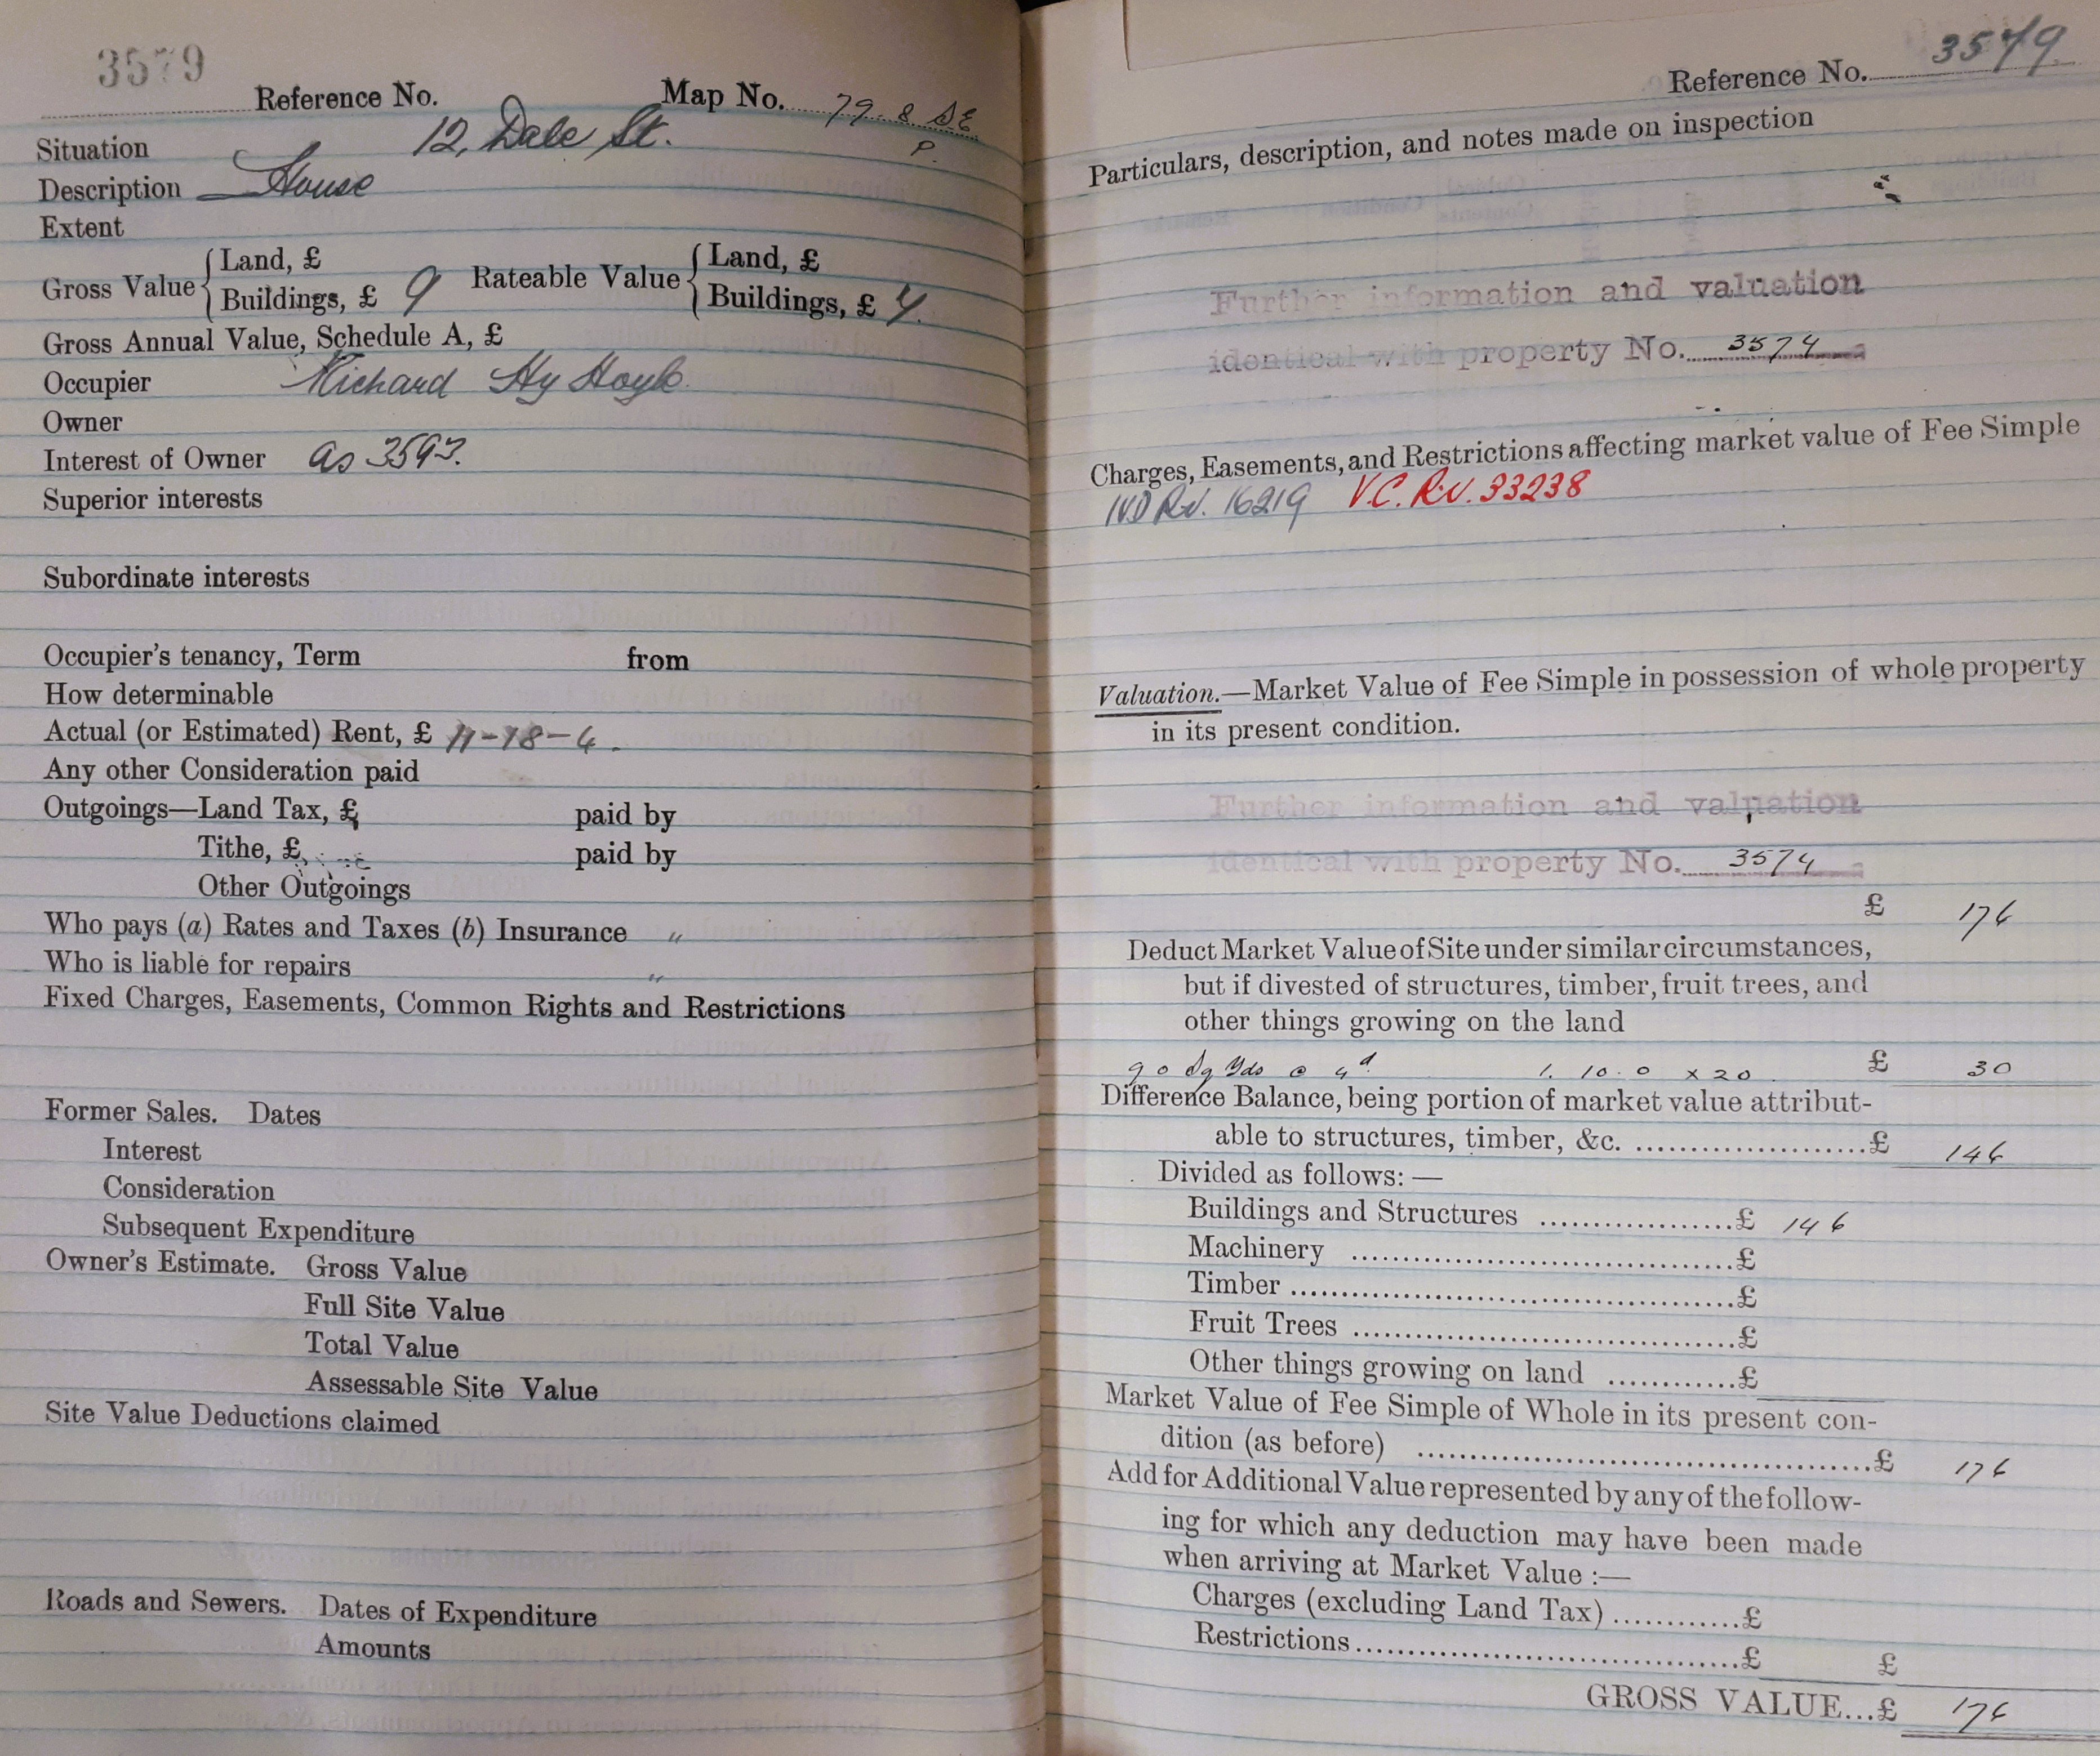 3579
Reference No. Map No. 79.8 SE
P.
Situation 12, Dale St.
Description House
Extent
Gross Value { Land, £ Rateable Value { Land, £
Buildings, £ 9 Buildings, £ 7.
Gross Annual Value, Schedule A, £
Occupier Richard Hy Hoyle
Owner
Interest of Owner as 3593.
Superior interests
Subordinate interests
Occupier's tenancy, Term from
How determinable
Actual (or Estimated) Rent, £ 11-18-4.
Any other Consideration paid
Outgoings—Land Tax, £ paid by
Tithe, £ paid by
Other Outgoings
Who pays (a) Rates and Taxes (b) Insurance "
Who is liable for repairs "
Fixed Charges, Easements, Common Rights and Restrictions
Former Sales. Dates
Interest
Consideration
Subsequent Expenditure
Owner's Estimate. Gross Value
Full Site Value
Total Value
Assessable Site Value
Site Value Deductions claimed
Roads and Sewers. Dates of Expenditure
Amounts
Reference No. 3579
Particulars, description, and notes made on inspection
Further information and valuation
identical with property No. 3574
Charges, Easements, and Restrictions affecting market value of Fee Simple
IVD Rv. 16219 V.C. Rv. 33238
Valuation.—Market Value of Fee Simple in possession of whole property
in its present condition.
Further information and valuation
identical with property No. 3574
£ 176
Deduct Market Value of Site under similar circumstances,
but if divested of structures, timber, fruit trees, and
other things growing on the land
90 Sq Yds @ 4d 1. 10. 0 x 20 £ 30
Difference Balance, being portion of market value attribut-
able to structures, timber, &c. ....................£ 146
Divided as follows:—
Buildings and Structures ..................£ 146
Machinery ....................................£
Timber ..........................................£
Fruit Trees ....................................£
Other things growing on land ............£
Market Value of Fee Simple of Whole in its present con-
dition (as before) ...........................................£ 176
Add for Additional Value represented by any of the follow-
ing for which any deduction may have been made
when arriving at Market Value :—
Charges (excluding Land Tax) ............£
Restrictions ....................................£ £
GROSS VALUE...£ 176